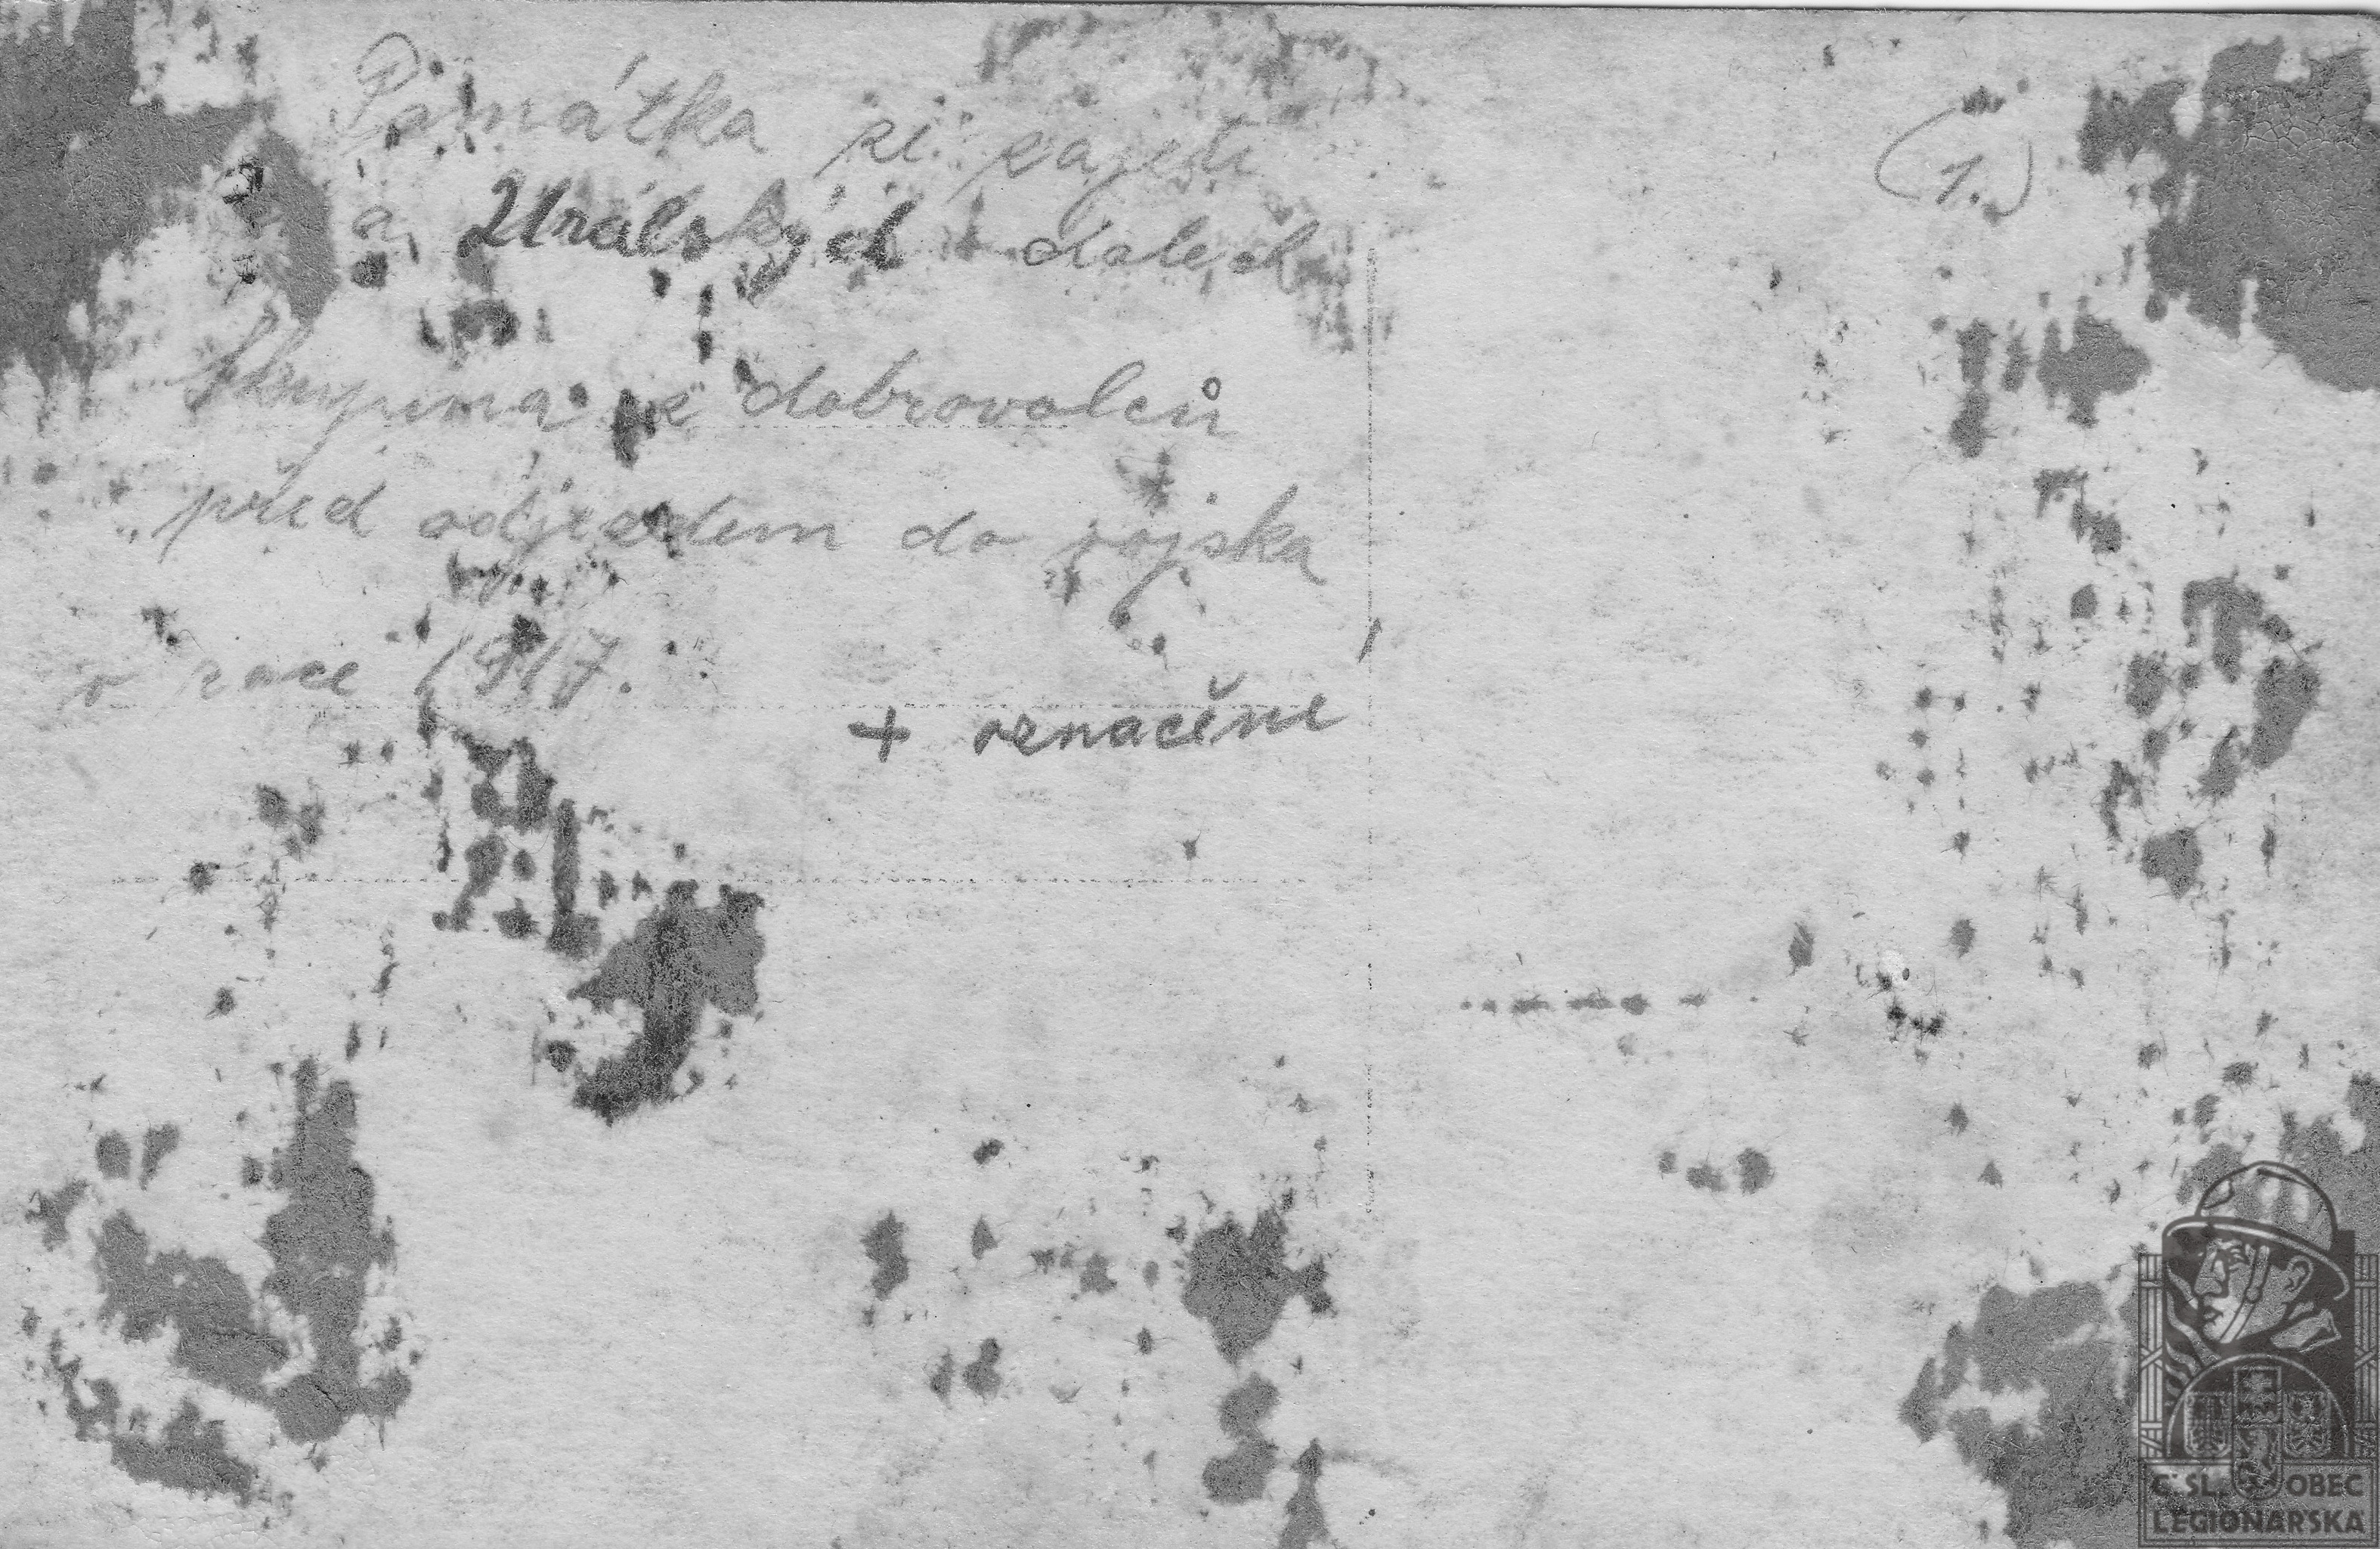 Památka ze zajetí
(1.)
a Uralských dolech
Skupina dobrovolců
před odjezdem do vojska
v roce 1917.
+ označení
Č SL. OBEC
LEGIONÁŘSKÁ